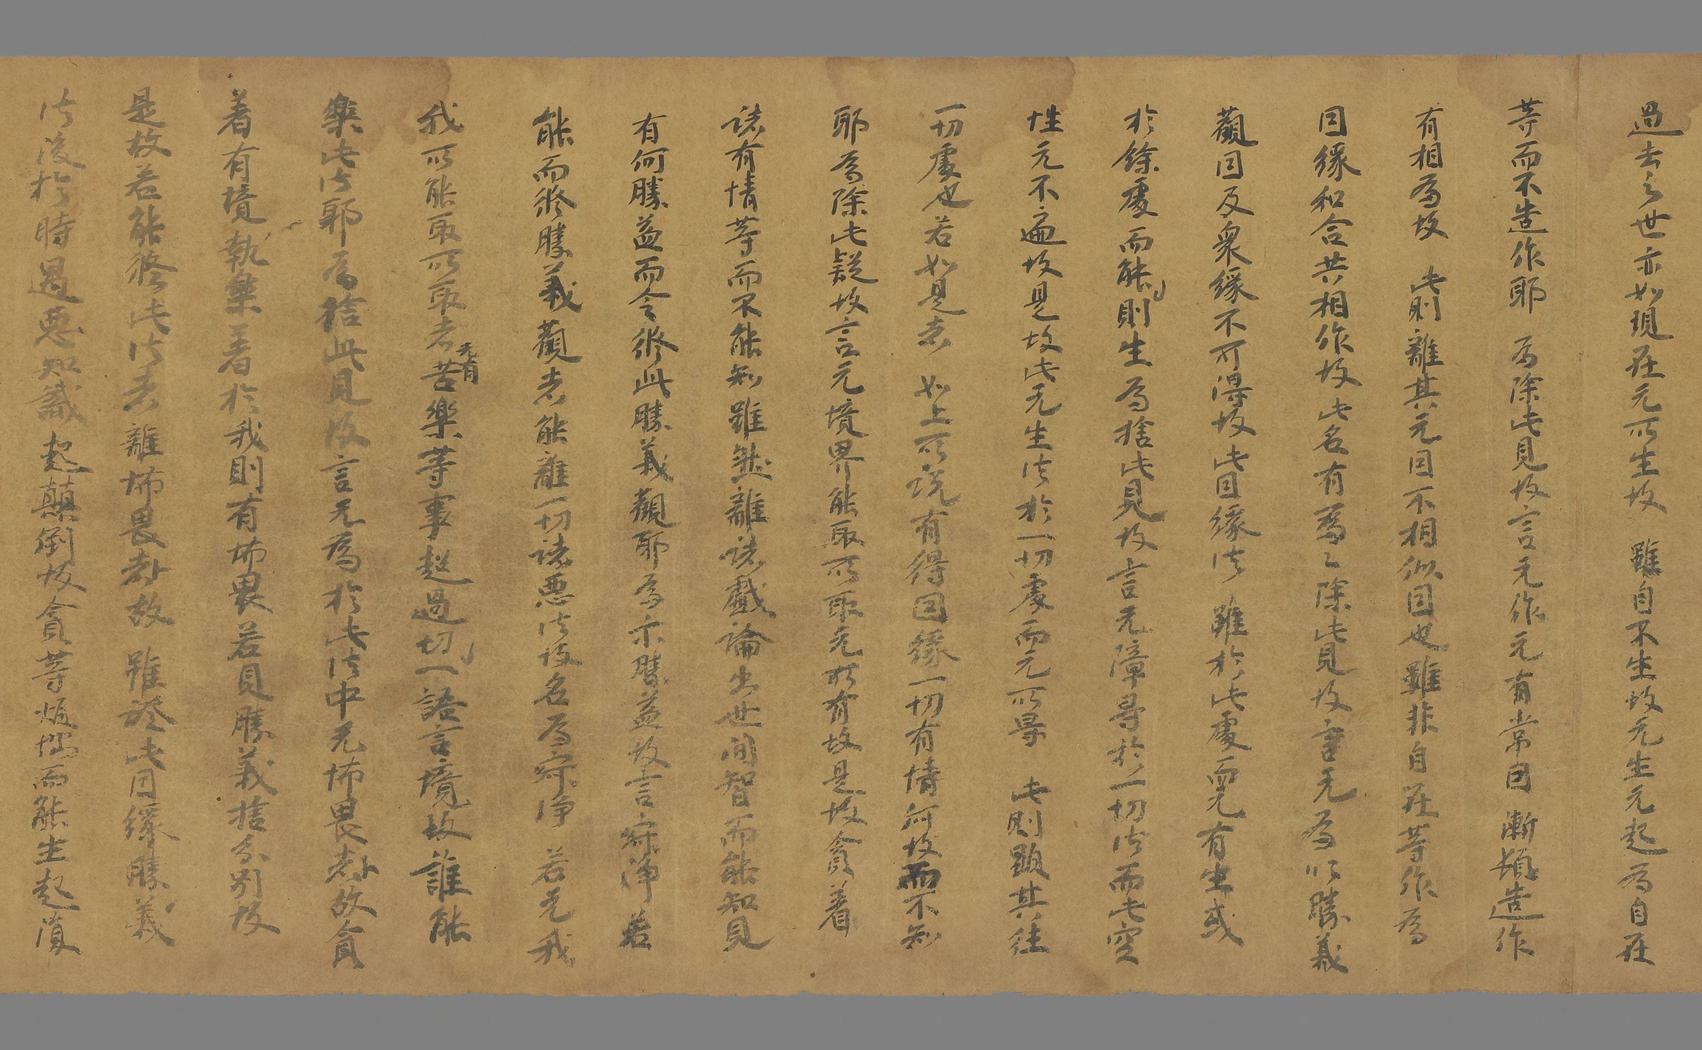 過去之世亦如現在元所生故 雖自不生故元生元起為自在
等而不造作耶 為除此見故言元作元有常因 漸頓造作
有相為故 此則離其元因不相似因也雖非自在等作為
因緣和合共相作故此名有為為除此見故言元為以勝義
觀因及衆緣不可得故此因緣法 雖於此處而元有生或
於餘處而能則生為捨此見故言元障导於一切法而此空
性元不遍故是故此元生法於一切處而元所导 此則顯其住
一切處也若如是者 如上所說有得因緣一切有情何故而不知
耶為除此疑故言元境界能取所取元所有故是故貪着
諸有情等而不能知雖然離諸戲論出世間智而能知見
有何勝益而令修此勝義觀耶為示勝益故言寂淨 若
能而修勝義觀者能離一切諸惡法故名為寂淨 若元我
我所能取所取者元有苦樂等事超過切一語言境故誰能
樂此法耶為捨此見故言元為於此法中元怖畏者故貪
着有境執樂著於我則有怖畏若見勝義捨分別故
是故若能修此法者離怖畏者故 雖證此因緣勝義
法後於時過惡知識起顛倒故貪等煩惱而能生起須